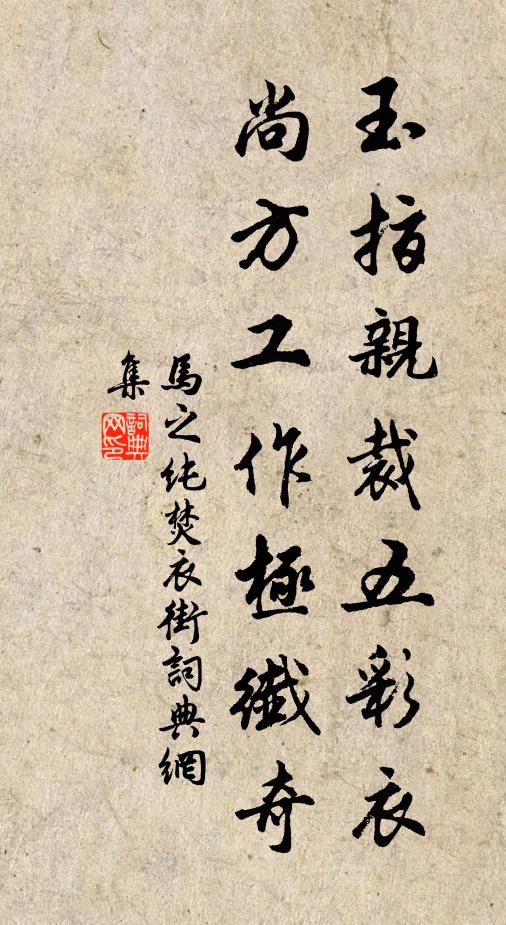 玉指親裁五彩衣
尚方工作極纖奇
馬之純焚衣街詞典網
集
詞典
网印